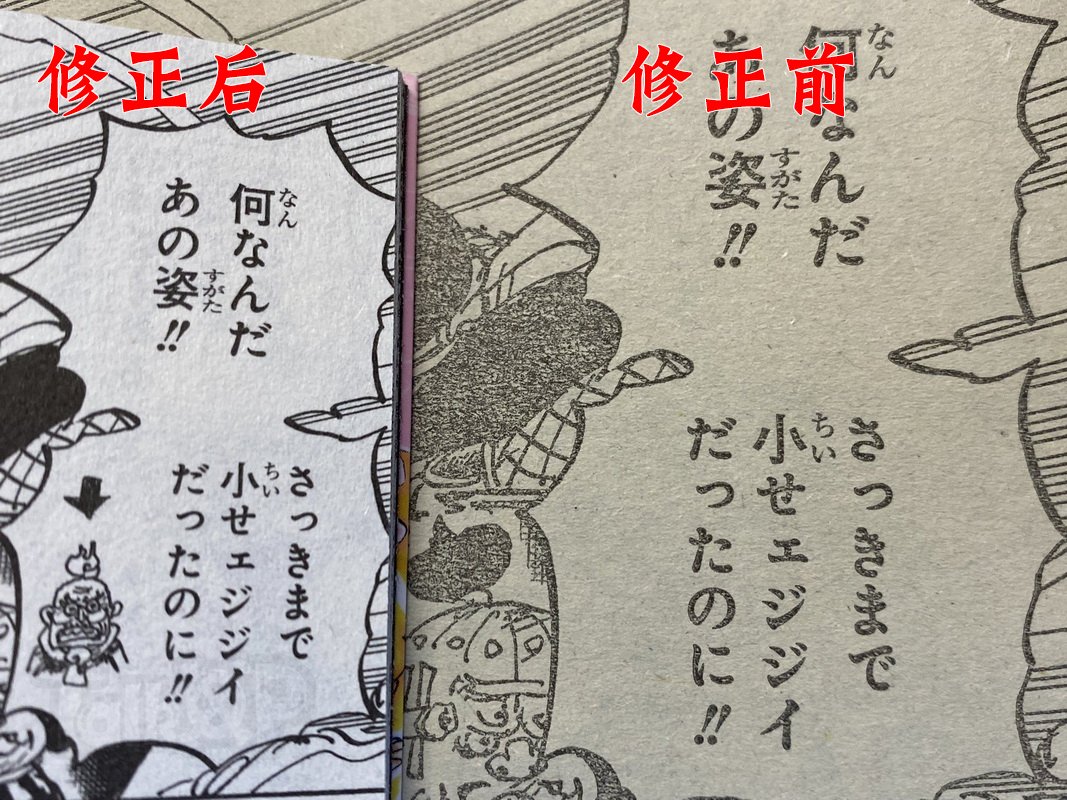 修正后
修正前
何なんだ
なん
あの姿!!
すがた
さっきまで
小せェジジイ
ちい
だったのに!!
何なんだ
なん
あの姿!!
すがた
さっきまで
小せェジジイ
ちい
だったのに!!